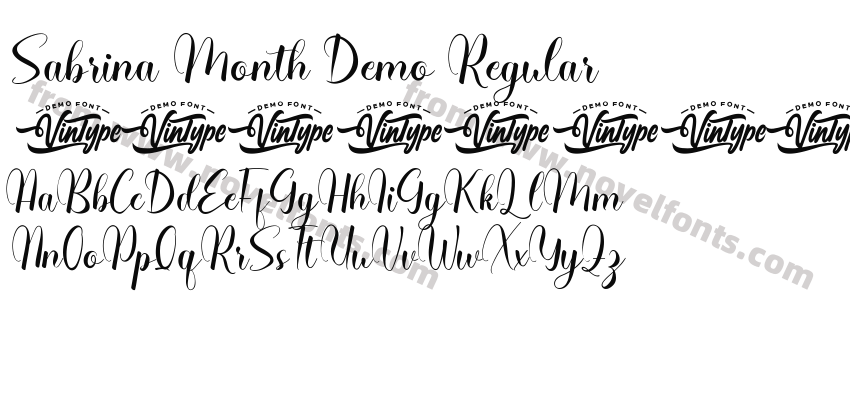 Sabrina Month Demo Regular
DEMO FONT Vintype DEMO FONT Vintype DEMO FONT Vintype DEMO FONT Vintype DEMO FONT Vintype DEMO FONT Vintype DEMO FONT Vintype DEMO FONT Vintyp
AaBbCcDdEeFfGgHhIiGgKkLlMm
NnOoPpQqRrSsTtUuVvWwXxYyZz
from www.novelfonts.com
from www.novelfonts.com